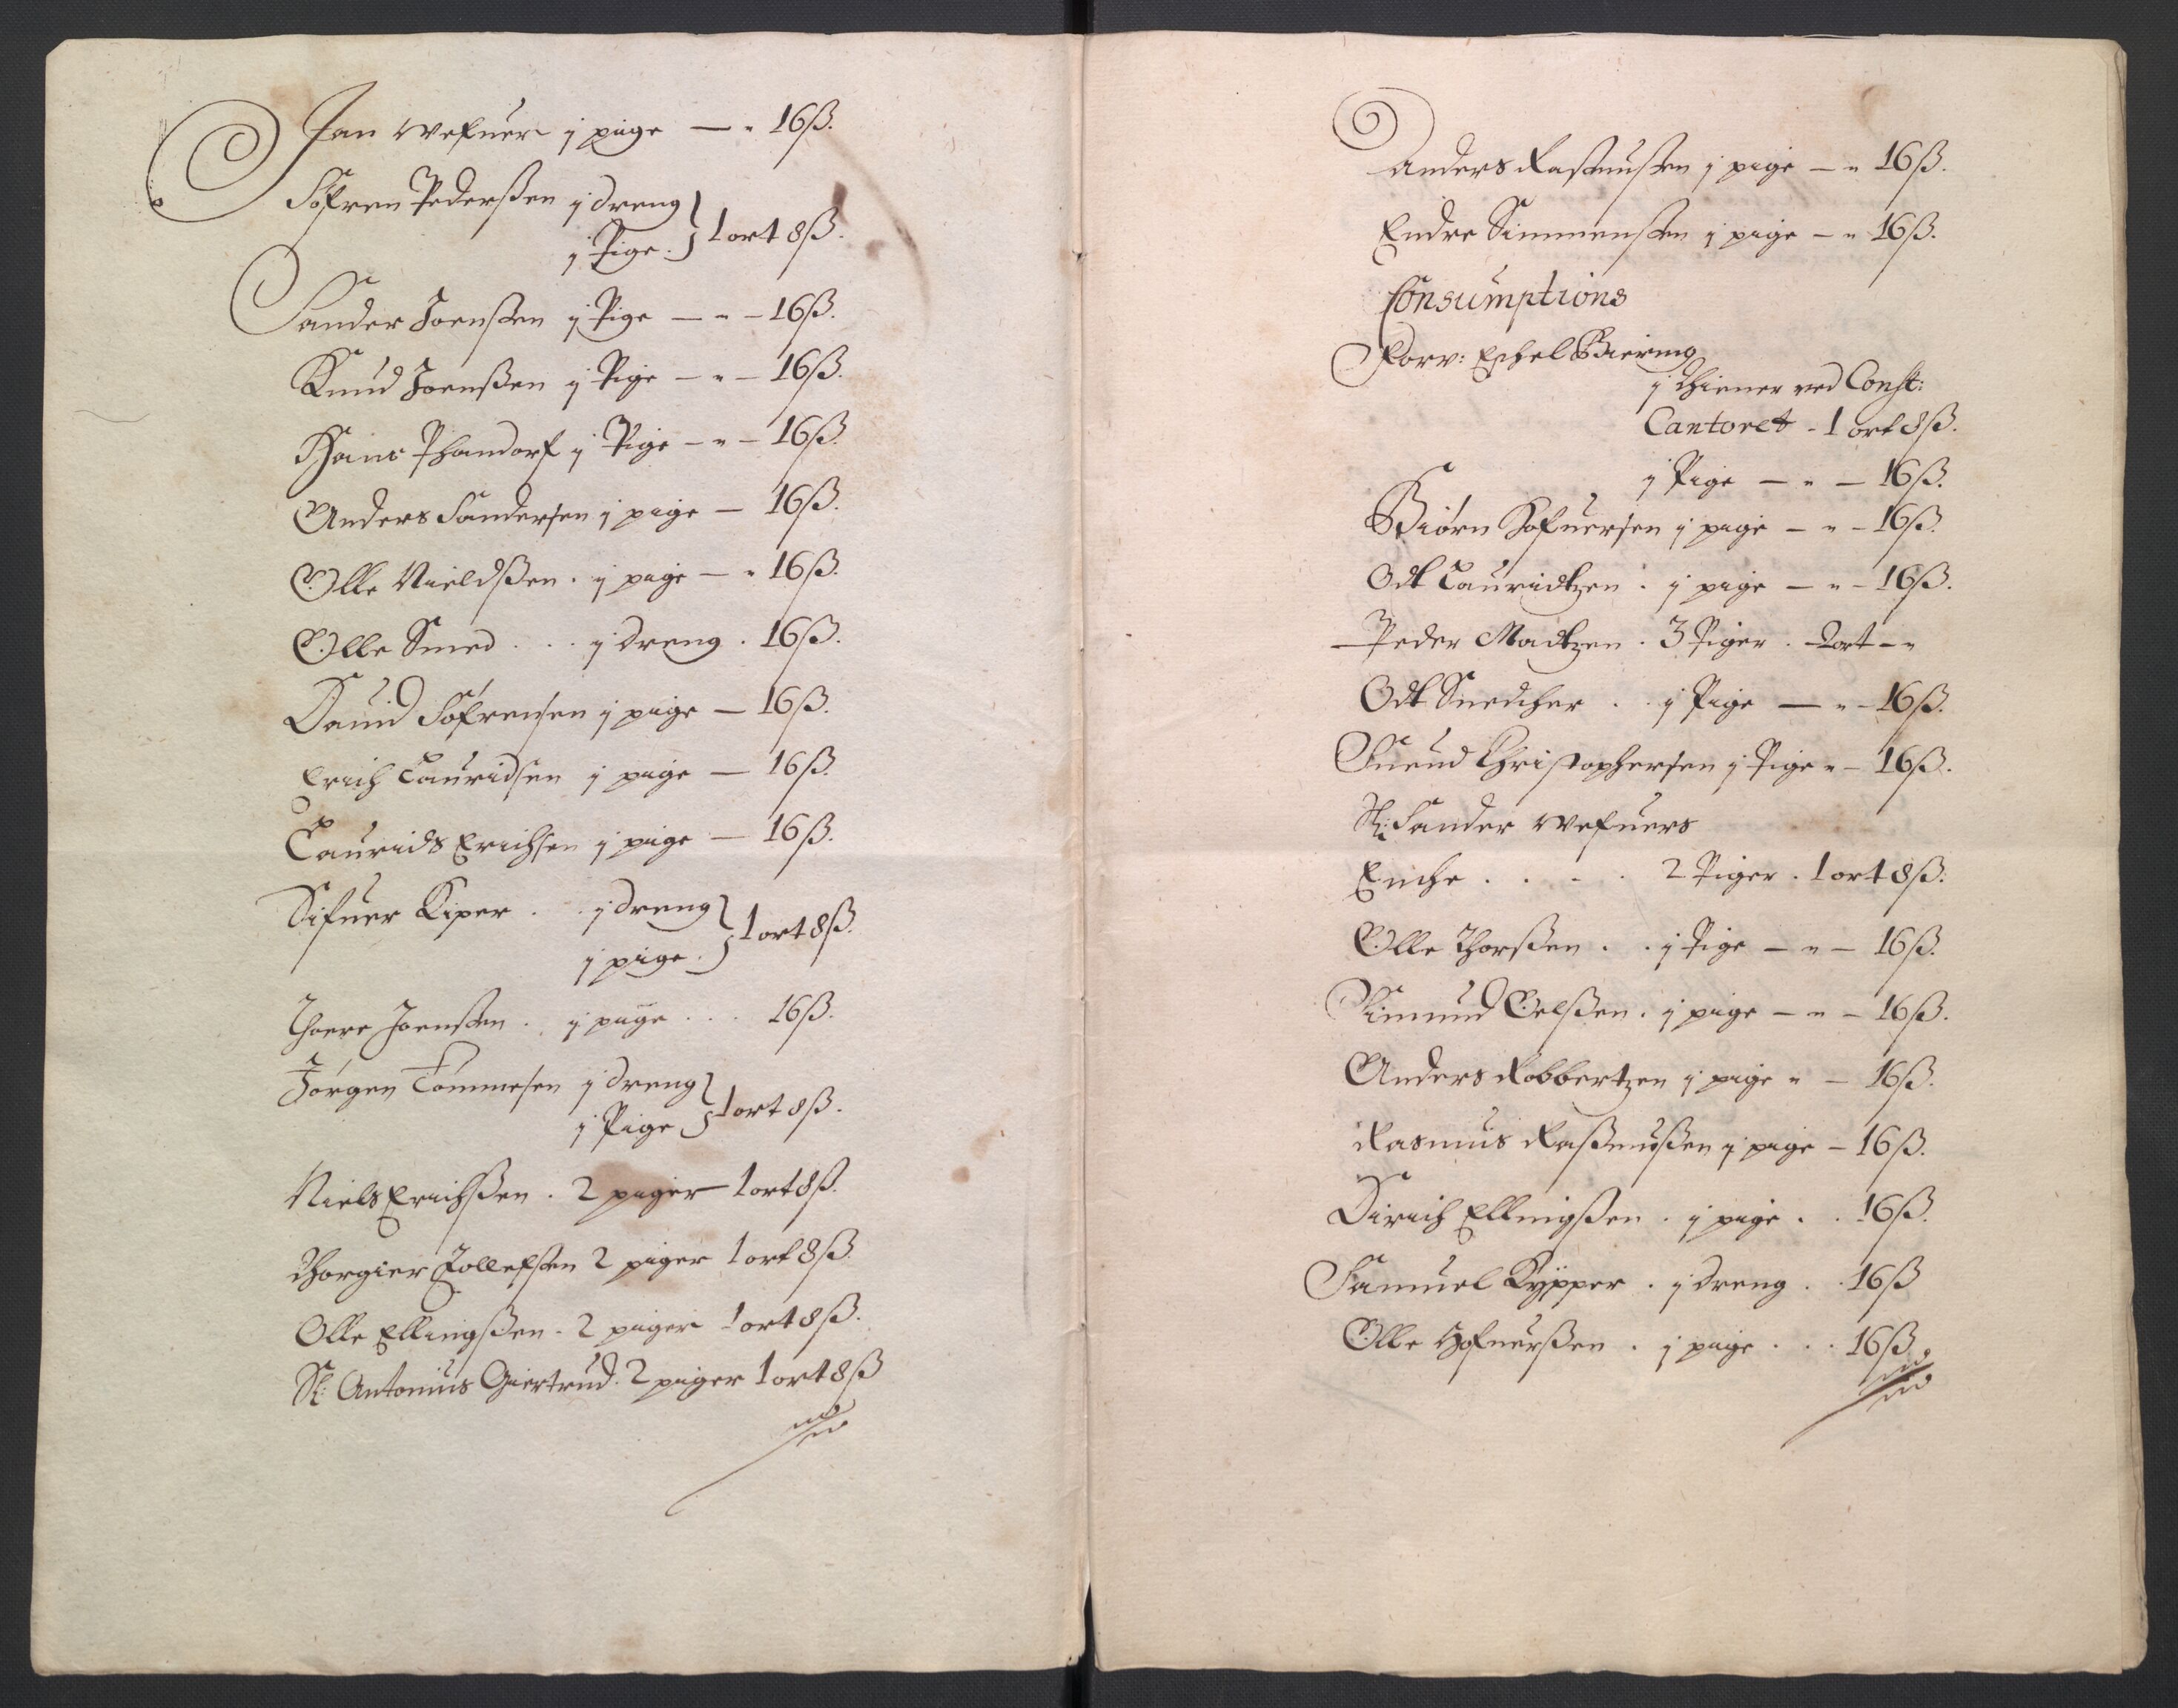 Jan Wefuer j pige — " 16ß.
Söfren Pederßen j dreng
j Pige. } 1 ort 8ß.
Sander Joenßen j Pige — " — 16ß.
Knud Joenßen j Pige — " — 16ß.
Hans Thandorf j Pige — " — 16ß.
Anders Sandersen j pige — 16ß.
Olle Nieldßen . j pige — " 16ß.
Olle Smed . . . j dreng . 16ß.
Dauid Söfrensen j pige — 16ß.
Erich Lauridsen j pige — 16ß.
Laurids Erichsen j pige — 16ß.
Sifuer Kiper . . j dreng
j pige . } 1 ort 8ß.
Thore Joenßen . j pige . . . 16ß.
Jörgen Tömmesen j dreng
j Pige } 1 ort 8ß.
Niels Erichßen . 2 piger — 1 ort 8ß.
Thorgier Tollefßen 2 piger 1 ort 8ß.
Olle Ellingßen . 2 piger 1 ort 8ß.
Sl: Antonius Giertrud . 2 piger 1 ort 8ß
Anders Rasmußen j pige — " 16ß.
Endre Simmenßen j pige — " 16ß.
Consumptions
Forv: Eschel Biering
j Thiener ved Const:
Cantoret - 1 ort 8ß.
j Pige — " — 16ß.
Biörn Hofuersen j pige — " — 16ß.
Odt Lauridtzen . j pige — " — 16ß.
Peder Madtzen . 3 Piger . 2 ort — "
Odt Snedcher . . j Pige — " — 16ß.
Suend Christophersen j Pige " — 16ß.
Sl: Sander Wefuers
Enche . . . . 2 Piger . 1 ort 8ß:
Olle Thorßen . . j Pige — " — 16ß.
Simund Oelßen . j pige — " — 16ß.
Anders Robbertzen j pige " — 16ß.
Rasmus Raßmußen j pige — 16ß.
Dirich Ellingßen . j pige . . 16ß.
Samuel Kÿpper . j dreng . . 16ß
Olle Hofuerßen . j pige . . . 16ß